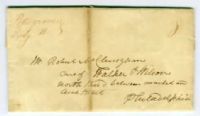 July 11
Mr Robert McClenaghan
Care of Walker & Wilson
north third between market and
arch Street
Philadelphia